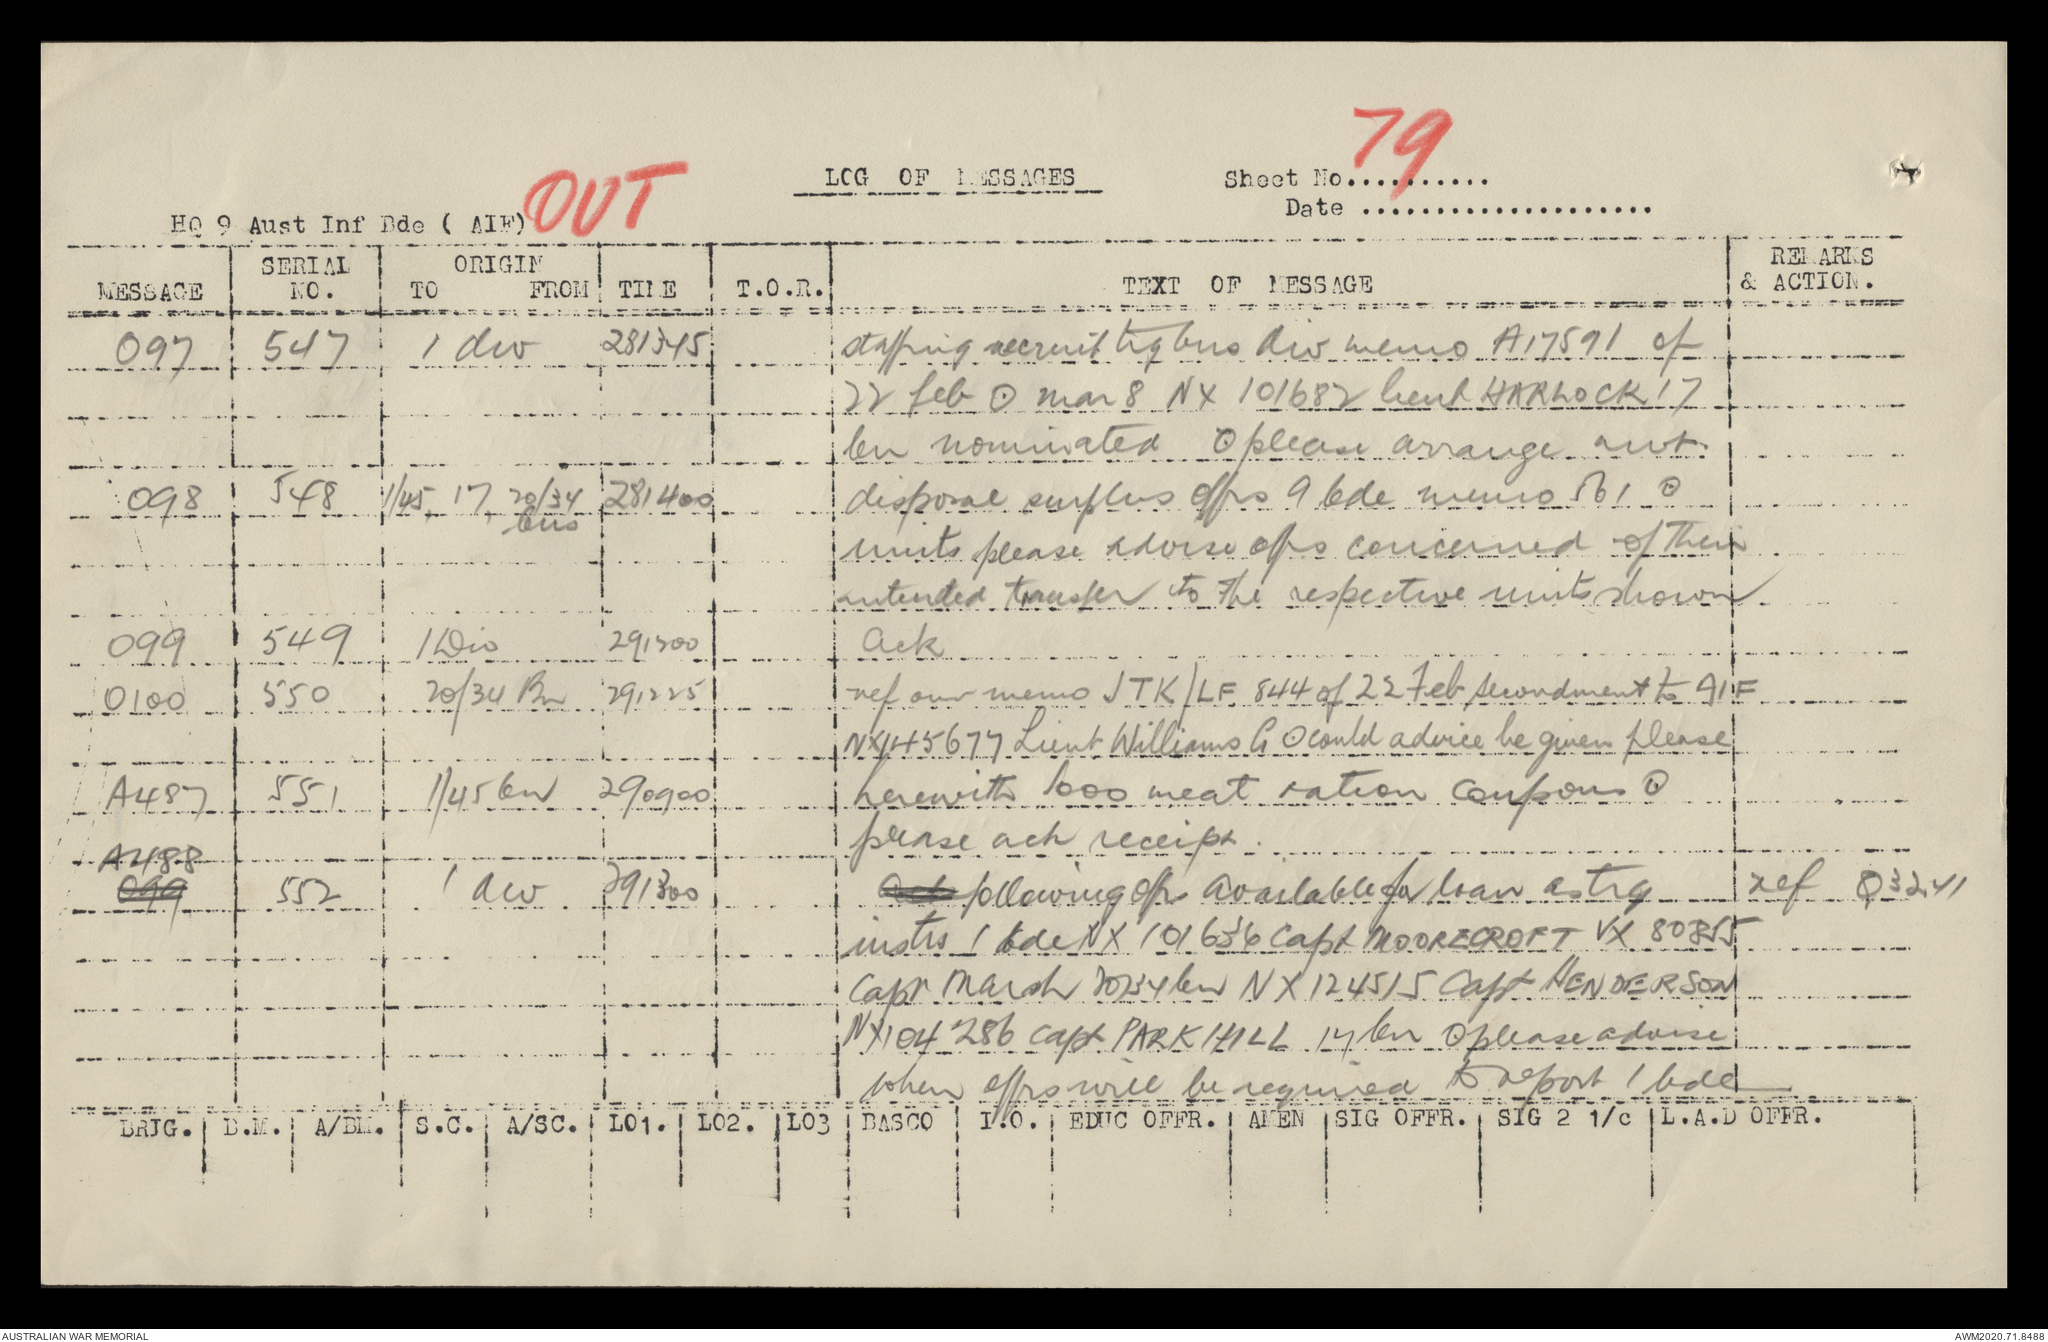 79
OUT
LOG OF MESSAGES
Sheet No..........
Date ....................
HQ 9 Aust Inf Bde ( AIF)
MESSAGE SERIAL NO. ORIGIN TO FROM TIME T.O.R. TEXT OF MESSAGE REMARKS & ACTION.
097 547 1 div 281345 staffing recruit trg bns div memo A17591 of
22 feb ⊙ mar 8 NX 101682 Lieut HARLOCK 17
bn nominated ⊙ please arrange
098 548 1/45, 17, 20/34 bns 281400 disposal surplus offrs 9 bde memo 561 ⊙
units please advise offrs concerned of their
intended transfer to the respective units shown
099 549 1 Div 291300 Ack
0100 550 20/34 Bn 291225 ref our memo JTK/LF 844 of 22 Feb secondment to AIF
NX145677 Lieut Williams G ⊙ could advice be given please
A487 551 1/45 bn 290900 herewith 1000 meat ration coupons ⊙
please ack receipt.
A488
099 552 1 div 291300 Ack following offrs available for loan as trg ref Q3241
instrs 1 bde NX 101636 Capt MOORECROFT VX 80355
Capt Marsh 20/34 bn NX 124515 Capt HENDERSON
NX104286 Capt PARKHILL 17 bn ⊙ please advise
when offrs will be required to report 1 bde
BRIG. B.M. A/BM. S.C. A/SC. LO1. LO2. LO3 BASCO I.O. EDUC OFFR. AMEN SIG OFFR. SIG 2 1/c L.A.D OFFR.
AUSTRALIAN WAR MEMORIAL
AWM2020.71.8488